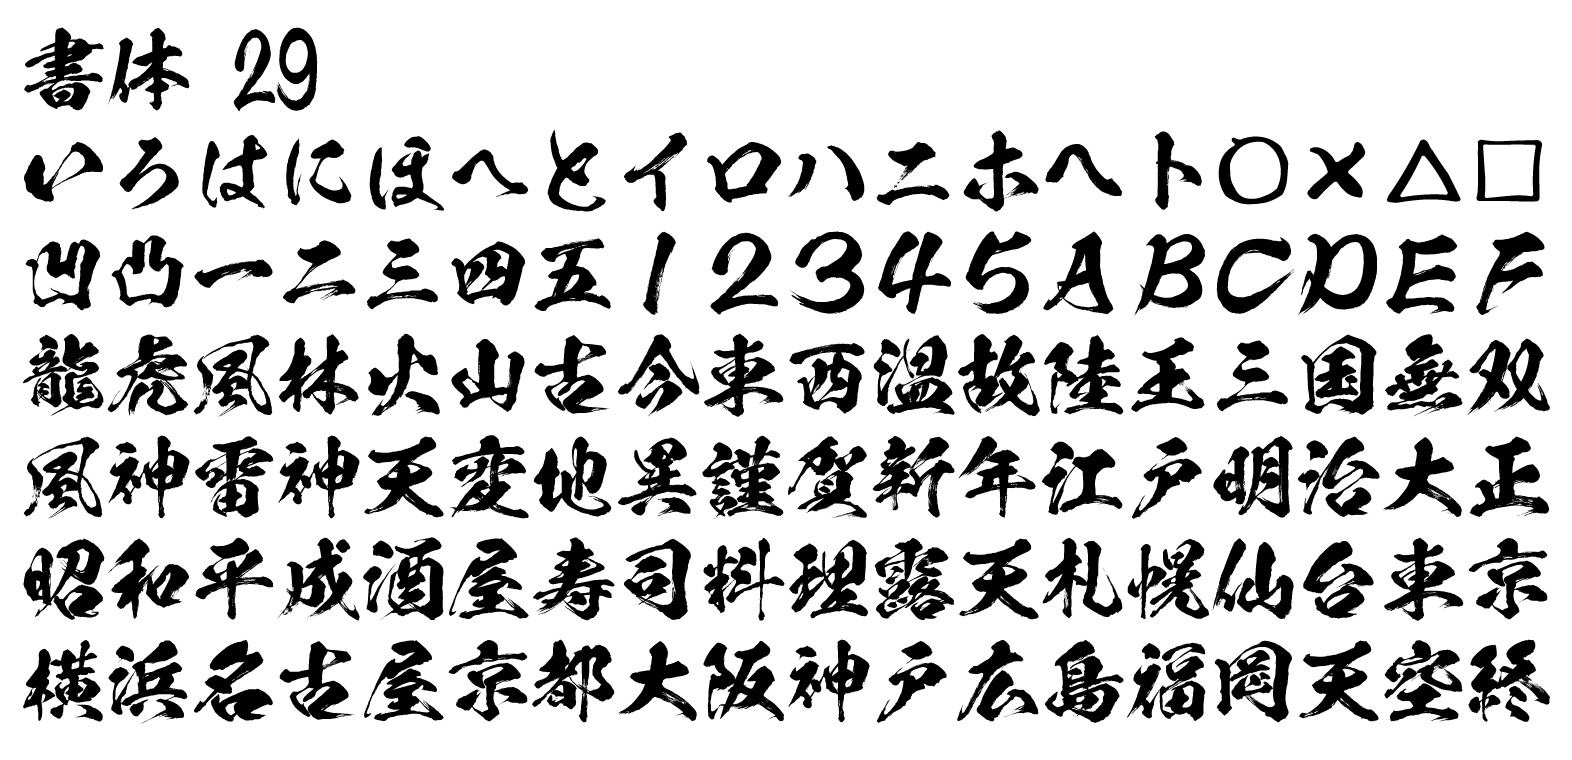 書体 29
いろはにほへとイロハニホヘト○×△□
凹凸一二三四五12345ABCDEF
龍虎風林火山古今東西温故陸王三国無双
風神雷神天変地異謹賀新年江戸明治大正
昭和平成酒屋寿司料理露天札幌仙台東京
横浜名古屋京都大阪神戸広島福岡天空終